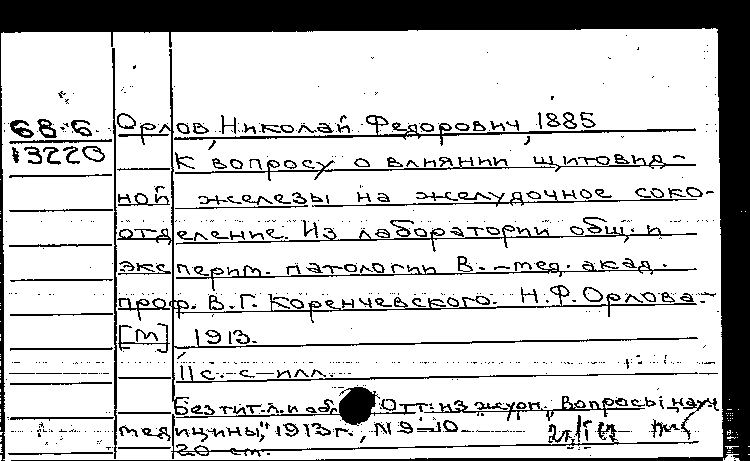 68-6 Орлов, Николай Федорович, 1885
13220 К вопросу о влиянии щитовид-
ной железы на желудочное соко-
отделение. Из лаборатории общ. и
эксперим. патологии В.-мед. акад.
проф. В.Г. Коренчевского. Н.Ф. Орлова.-
[М] 1913.
11 с. с илл.
Без тит. л. и обл. Отт. из журн. "Вопросы науч
медицины," 1913 г., N 9-10.
20 cm.